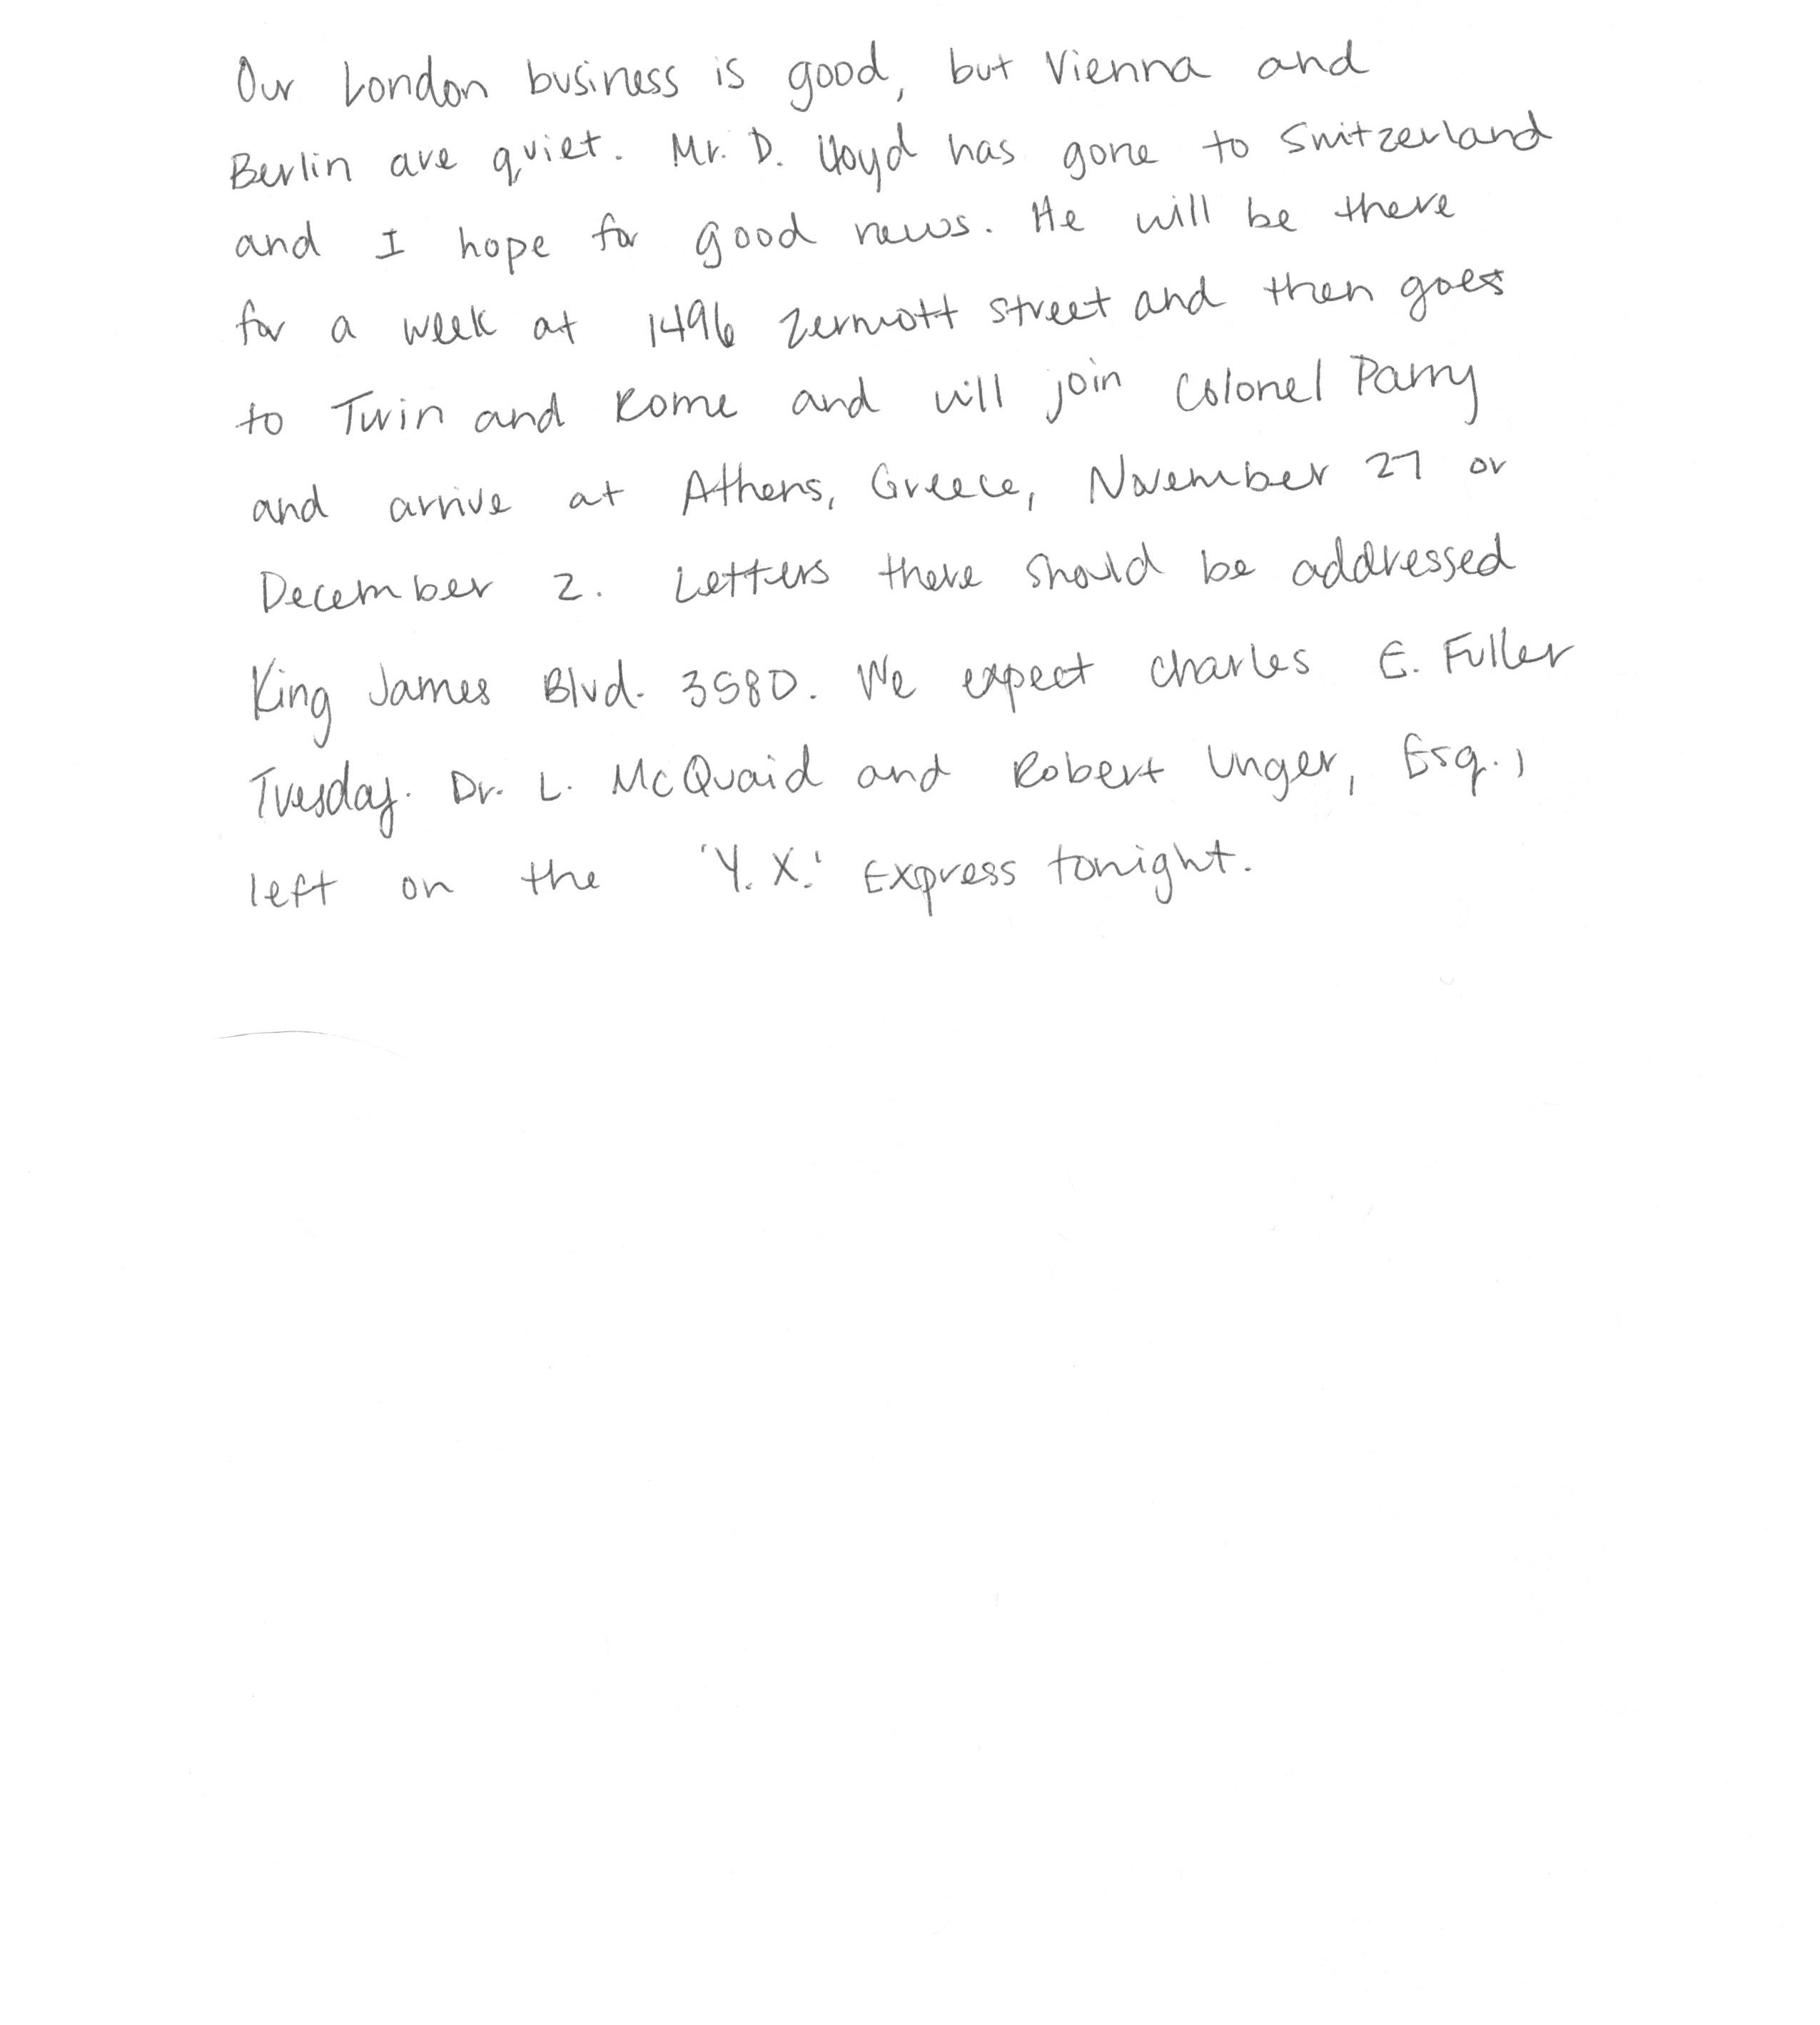 Our London business is good, but Vienna and
Berlin are quiet. Mr. D. Lloyd has gone to Switzerland
and I hope for good news. He will be there
for a week at 1496 Zermott street and then goes
to Turin and Rome and will join Colonel Parry
and arrive at Athens, Greece, November 27 or
December 2. Letters there should be addressed
King James Blvd. 3580. We expect Charles E. Fuller
Tuesday. Dr. L. McQuaid and Robert Unger, Esq.,
left on the 'Y. X.' Express tonight.